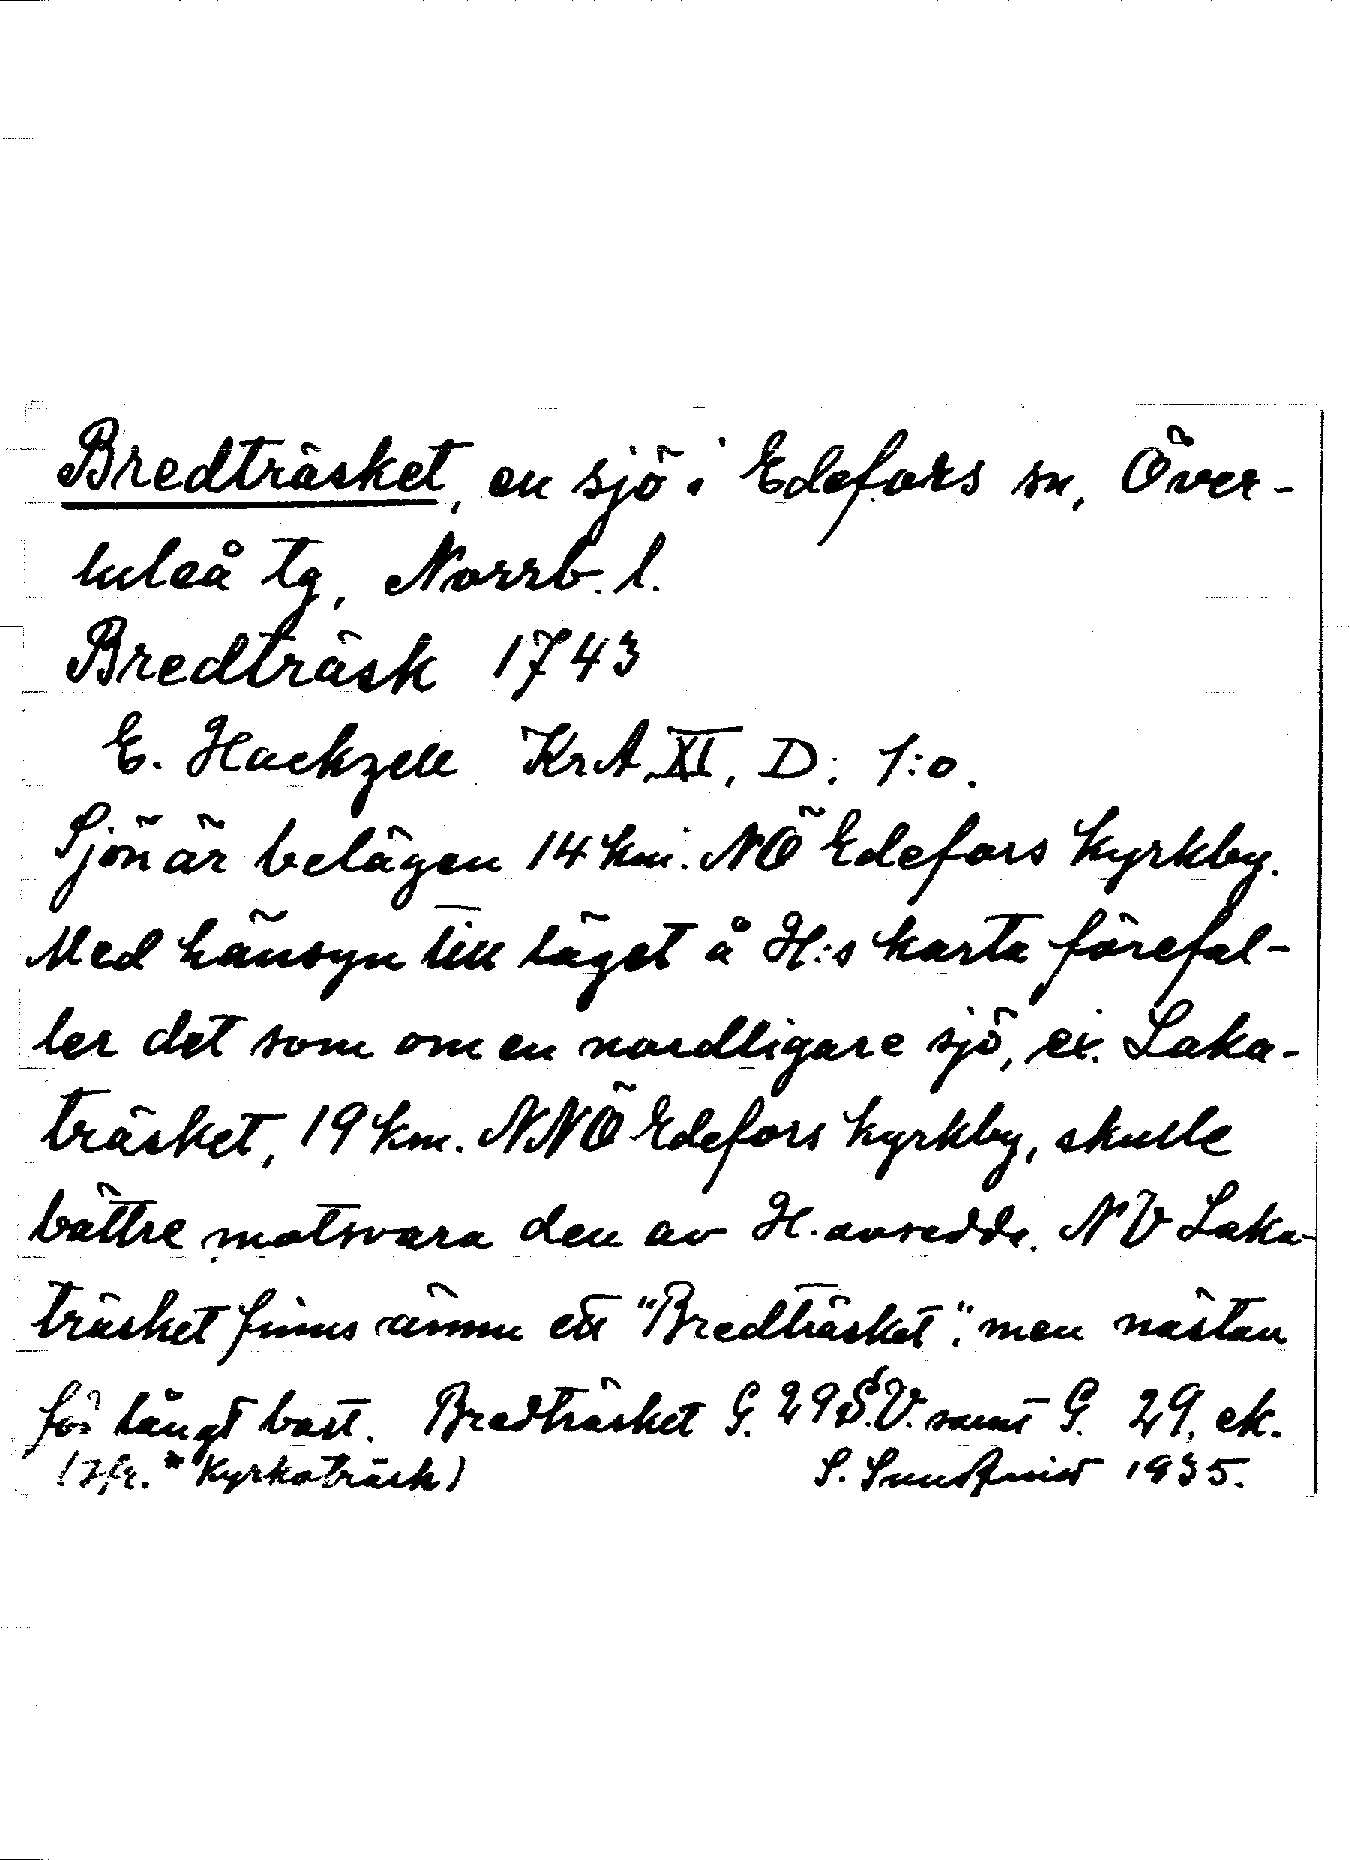 Bredträsket, en sjö i Edefors sn, Över-
luleå tg, Norrb. l.
Bredträsk 1743
E. Hackzell KrA. XI, D: 1:o.
Sjön är belägen 14 km. NÖ Edefors kyrkby.
Med hänsyn till läget å H:s karta förefal-
ler det som om en nordligare sjö, ex. Laka-
träsket, 19 km. NNÖ Edefors kyrkby, skulle
bättre motsvara den av H. avsedda. NV Laka-
träsket finns ännu ett "Bredträsket", men nästan
för långt bort. Bredträsket G. 29 S.V. samt G. 29, ek.
(Jfr. * Kyrkoträsk) S. 1935.